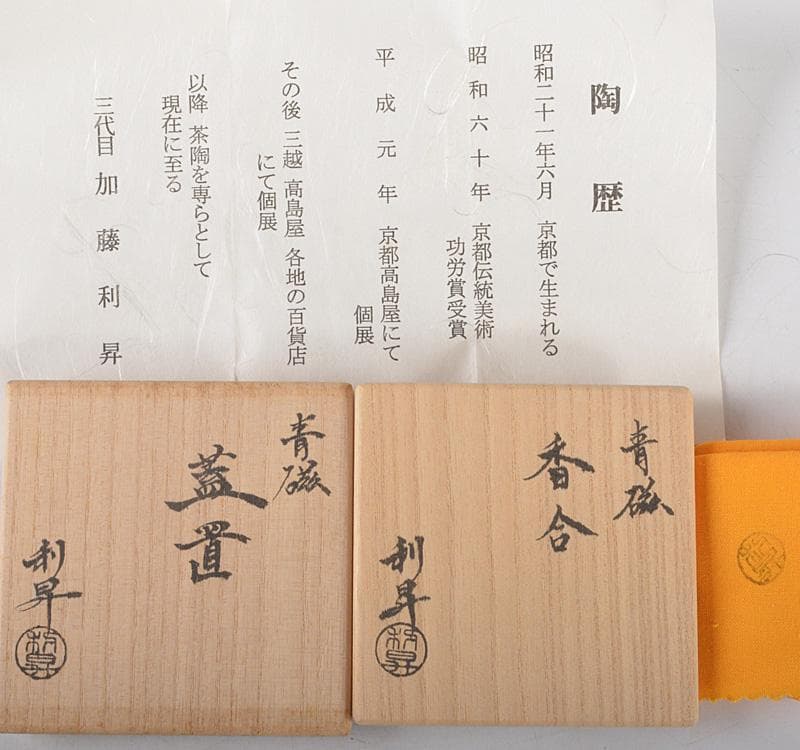 陶歴
昭和二十一年六月 京都で生まれる
昭和六十年 京都伝統美術
功労賞受賞
平成元年 京都高島屋にて
個展
その後 三越 高島屋 各地の百貨店
にて個展
以降 茶陶を専らとして
現在に至る
三代目 加藤利昇
青磁
香合
利昇
利昇
青磁
蓋置
利昇
利昇